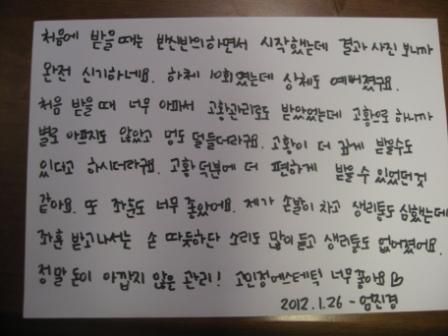 처음에 받을때는 반신반의하면서 시작했는데 결과 사진 보니까
완전 신기하네요. 하체 10회였는데 상체도 예뻐졌구요.
처음 받을 때 너무 아파서 고황관리로도 받았었는데 고황으로 하니까
별로 아프지도 않았고 멍도 덜들더라구요. 고황이 더 깊게 받을수도
있다고 하시더라구요. 고황 덕분에 더 편하게 받을 수 있었던것
같아요. 또 좌훈도 너무 좋았어요. 제가 손발이 차고 생리통도 심했는데
좌훈 받고나서는 손 따뜻하단 소리도 많이 듣고 생리통도 없어졌어요.
정말 돈이 아깝지 않은 관리! 고민정에스테틱 너무좋아요♡
2012.1.26 - 엄진경